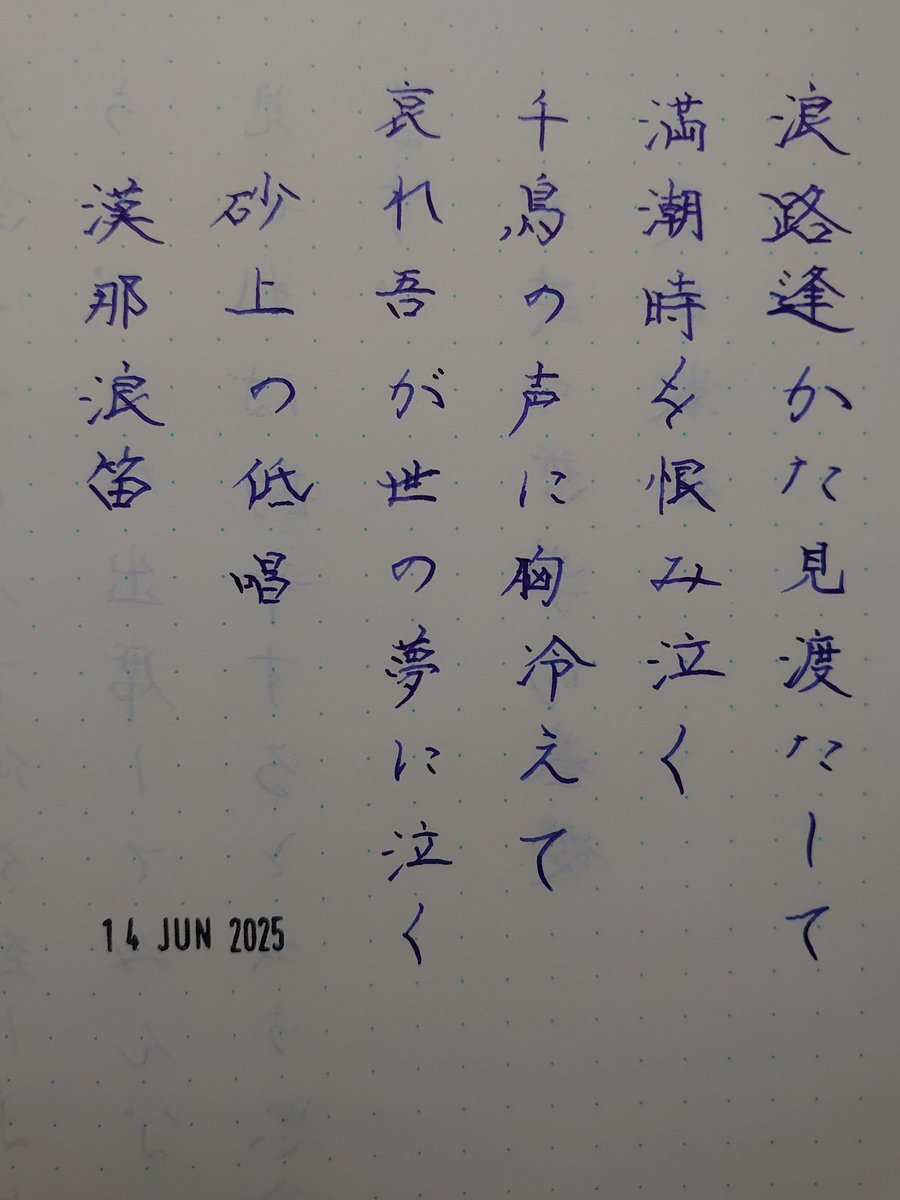 浪路逢かた見渡たして
満潮時を恨み泣く
千鳥の声に胸冷えて
哀れ吾が世の夢に泣く
砂上の低唱
漢那浪笛
14 JUN 2025